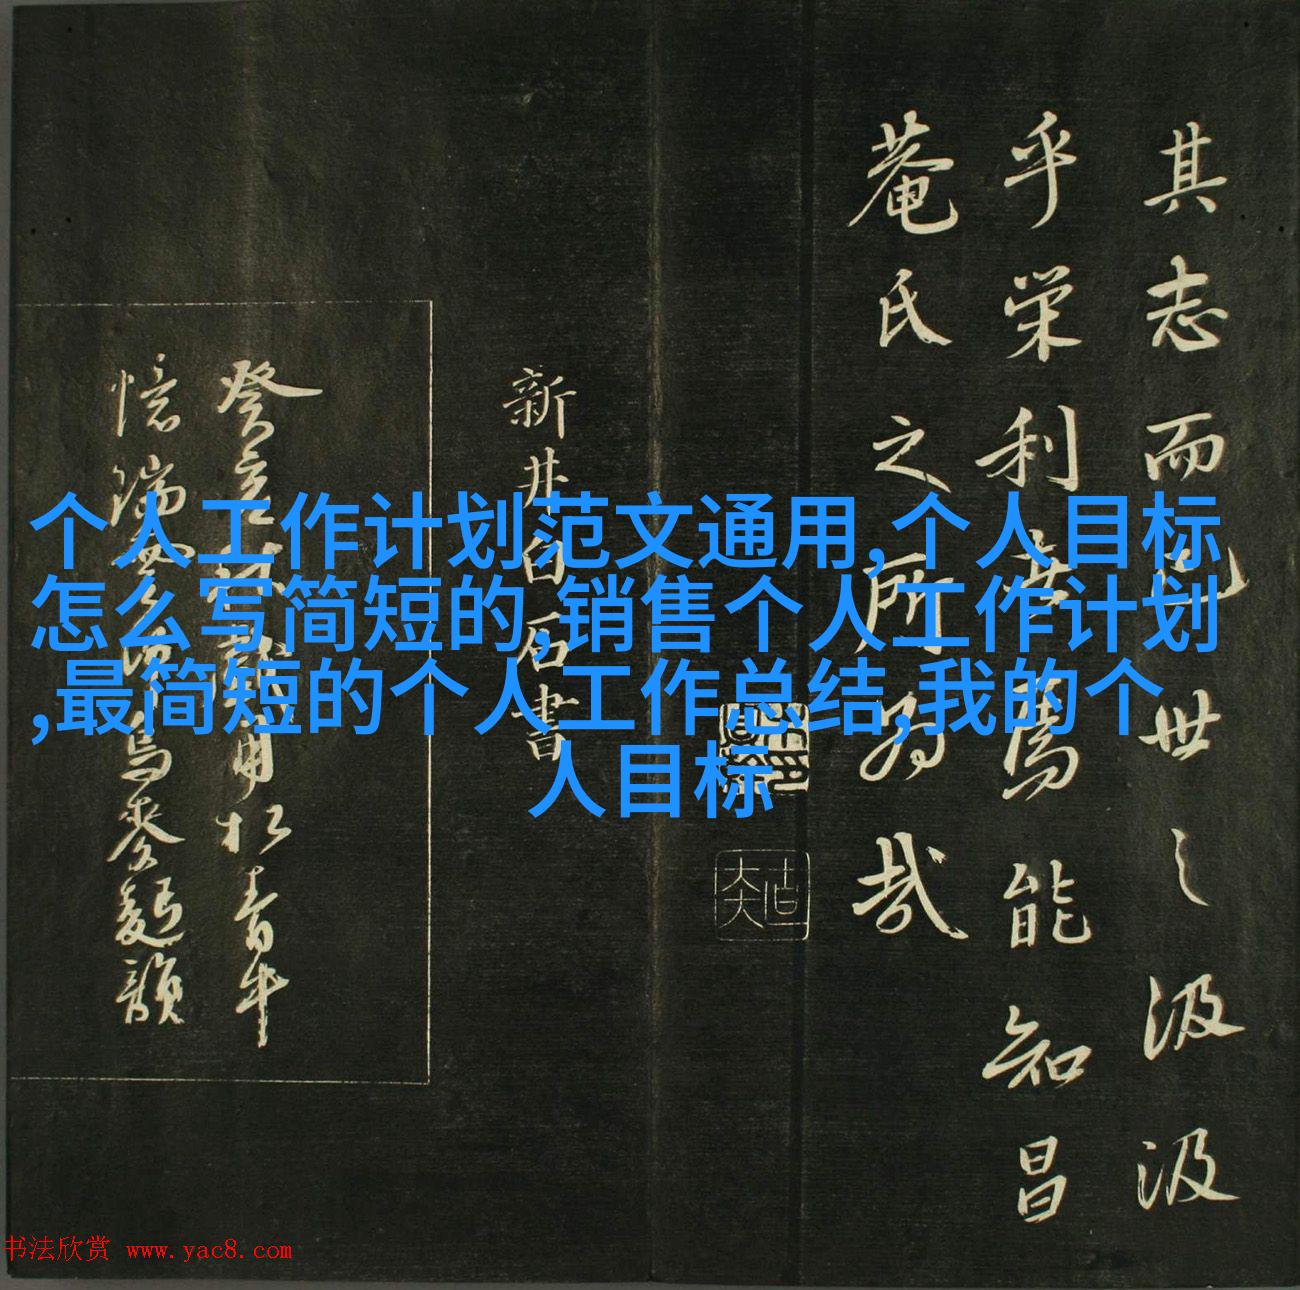 个人工作计划范文通用,个人目标
怎么写简短的,销售个人工作计划
,最简短的个人工作总结,我的个
人目标
其志而世之汲汲
乎栄利焉能知昌
菴氏之所為哉
新井白石書
癸用松青牛
憶瑞
书法欣赏 www.yac8.com